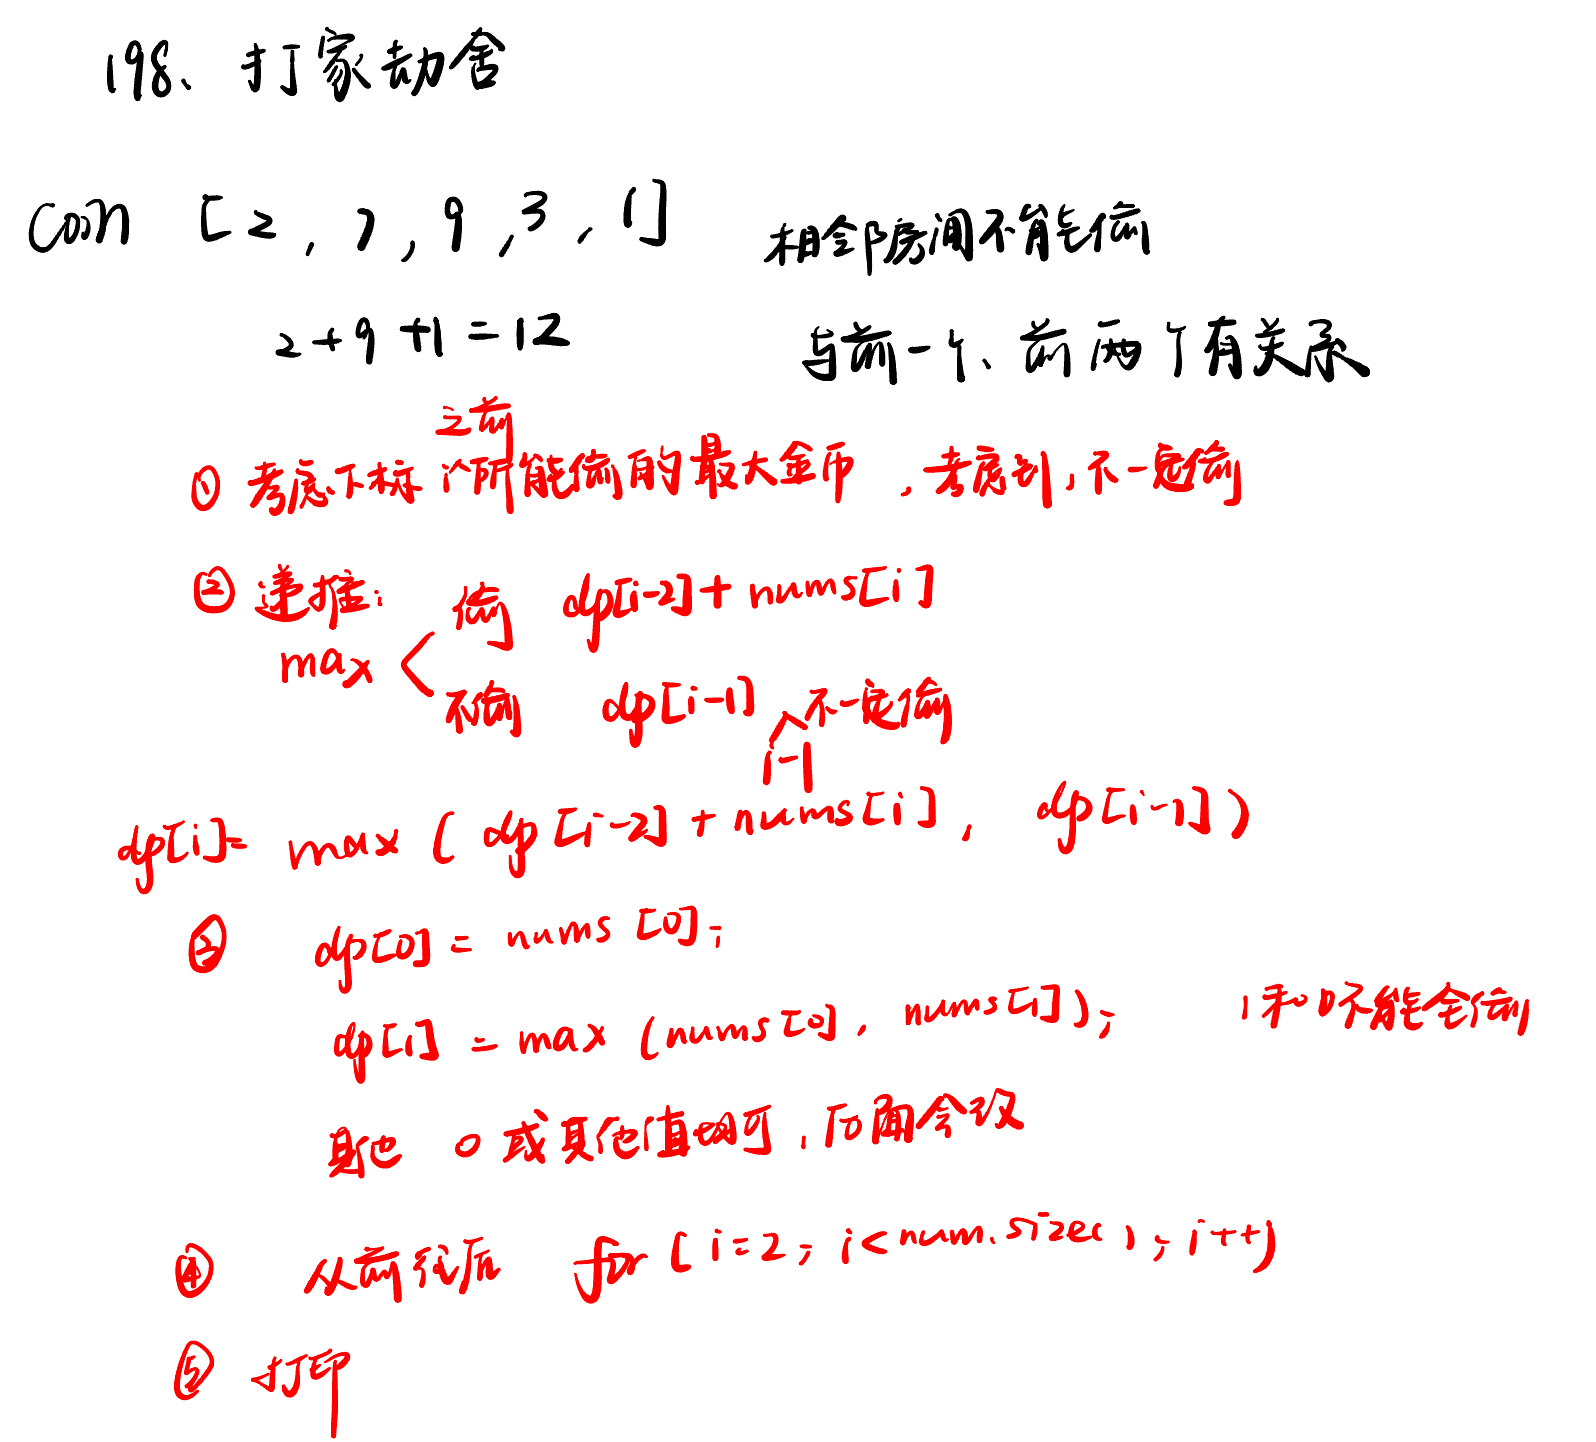 198、打家劫舍
coin [2,7,9,3,1] 相邻房间不能偷
2+9+1=12 与前一个、前两个有关系
之前
① 考虑下标i所能偷的最大金币,考虑到,不一定偷
② 递推:
偷 dp[i-2]+nums[i]
max
不偷 dp[i-1] 不一定偷
i-1
dp[i]= max(dp[i-2]+nums[i], dp[i-1])
③ dp[0]=nums[0];
dp[1]=max(nums[0],nums[1]); 1和0不能全偷
其他 0或其他值均可,后面会改
④ 从前往后 for(i=2;i<num.size();i++)
⑤ 打印